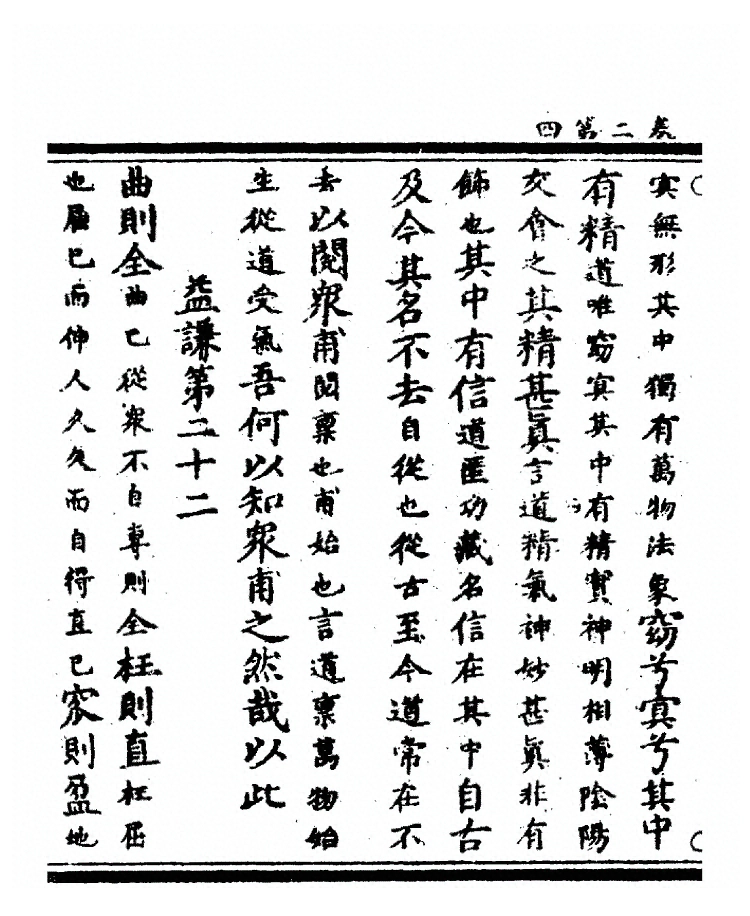 卷二第四
冥無形其中獨有萬物法象窈兮冥兮其中
有精道唯窈冥其中有精實神明相薄陰陽
交會之其精甚眞言道精氣神妙甚眞非有
飾也其中有信道匿功藏名信在其中自古
及今其名不去自從也從古至今道常在不
去以閱眾甫閱稟也甫始也言道稟萬物始
生從道受氣吾何以知眾甫之然哉以此
益謙第二十二
曲則全曲己從眾不自專則全枉則直枉屈
也屈己而伸人久久而自得直己窊則盈地